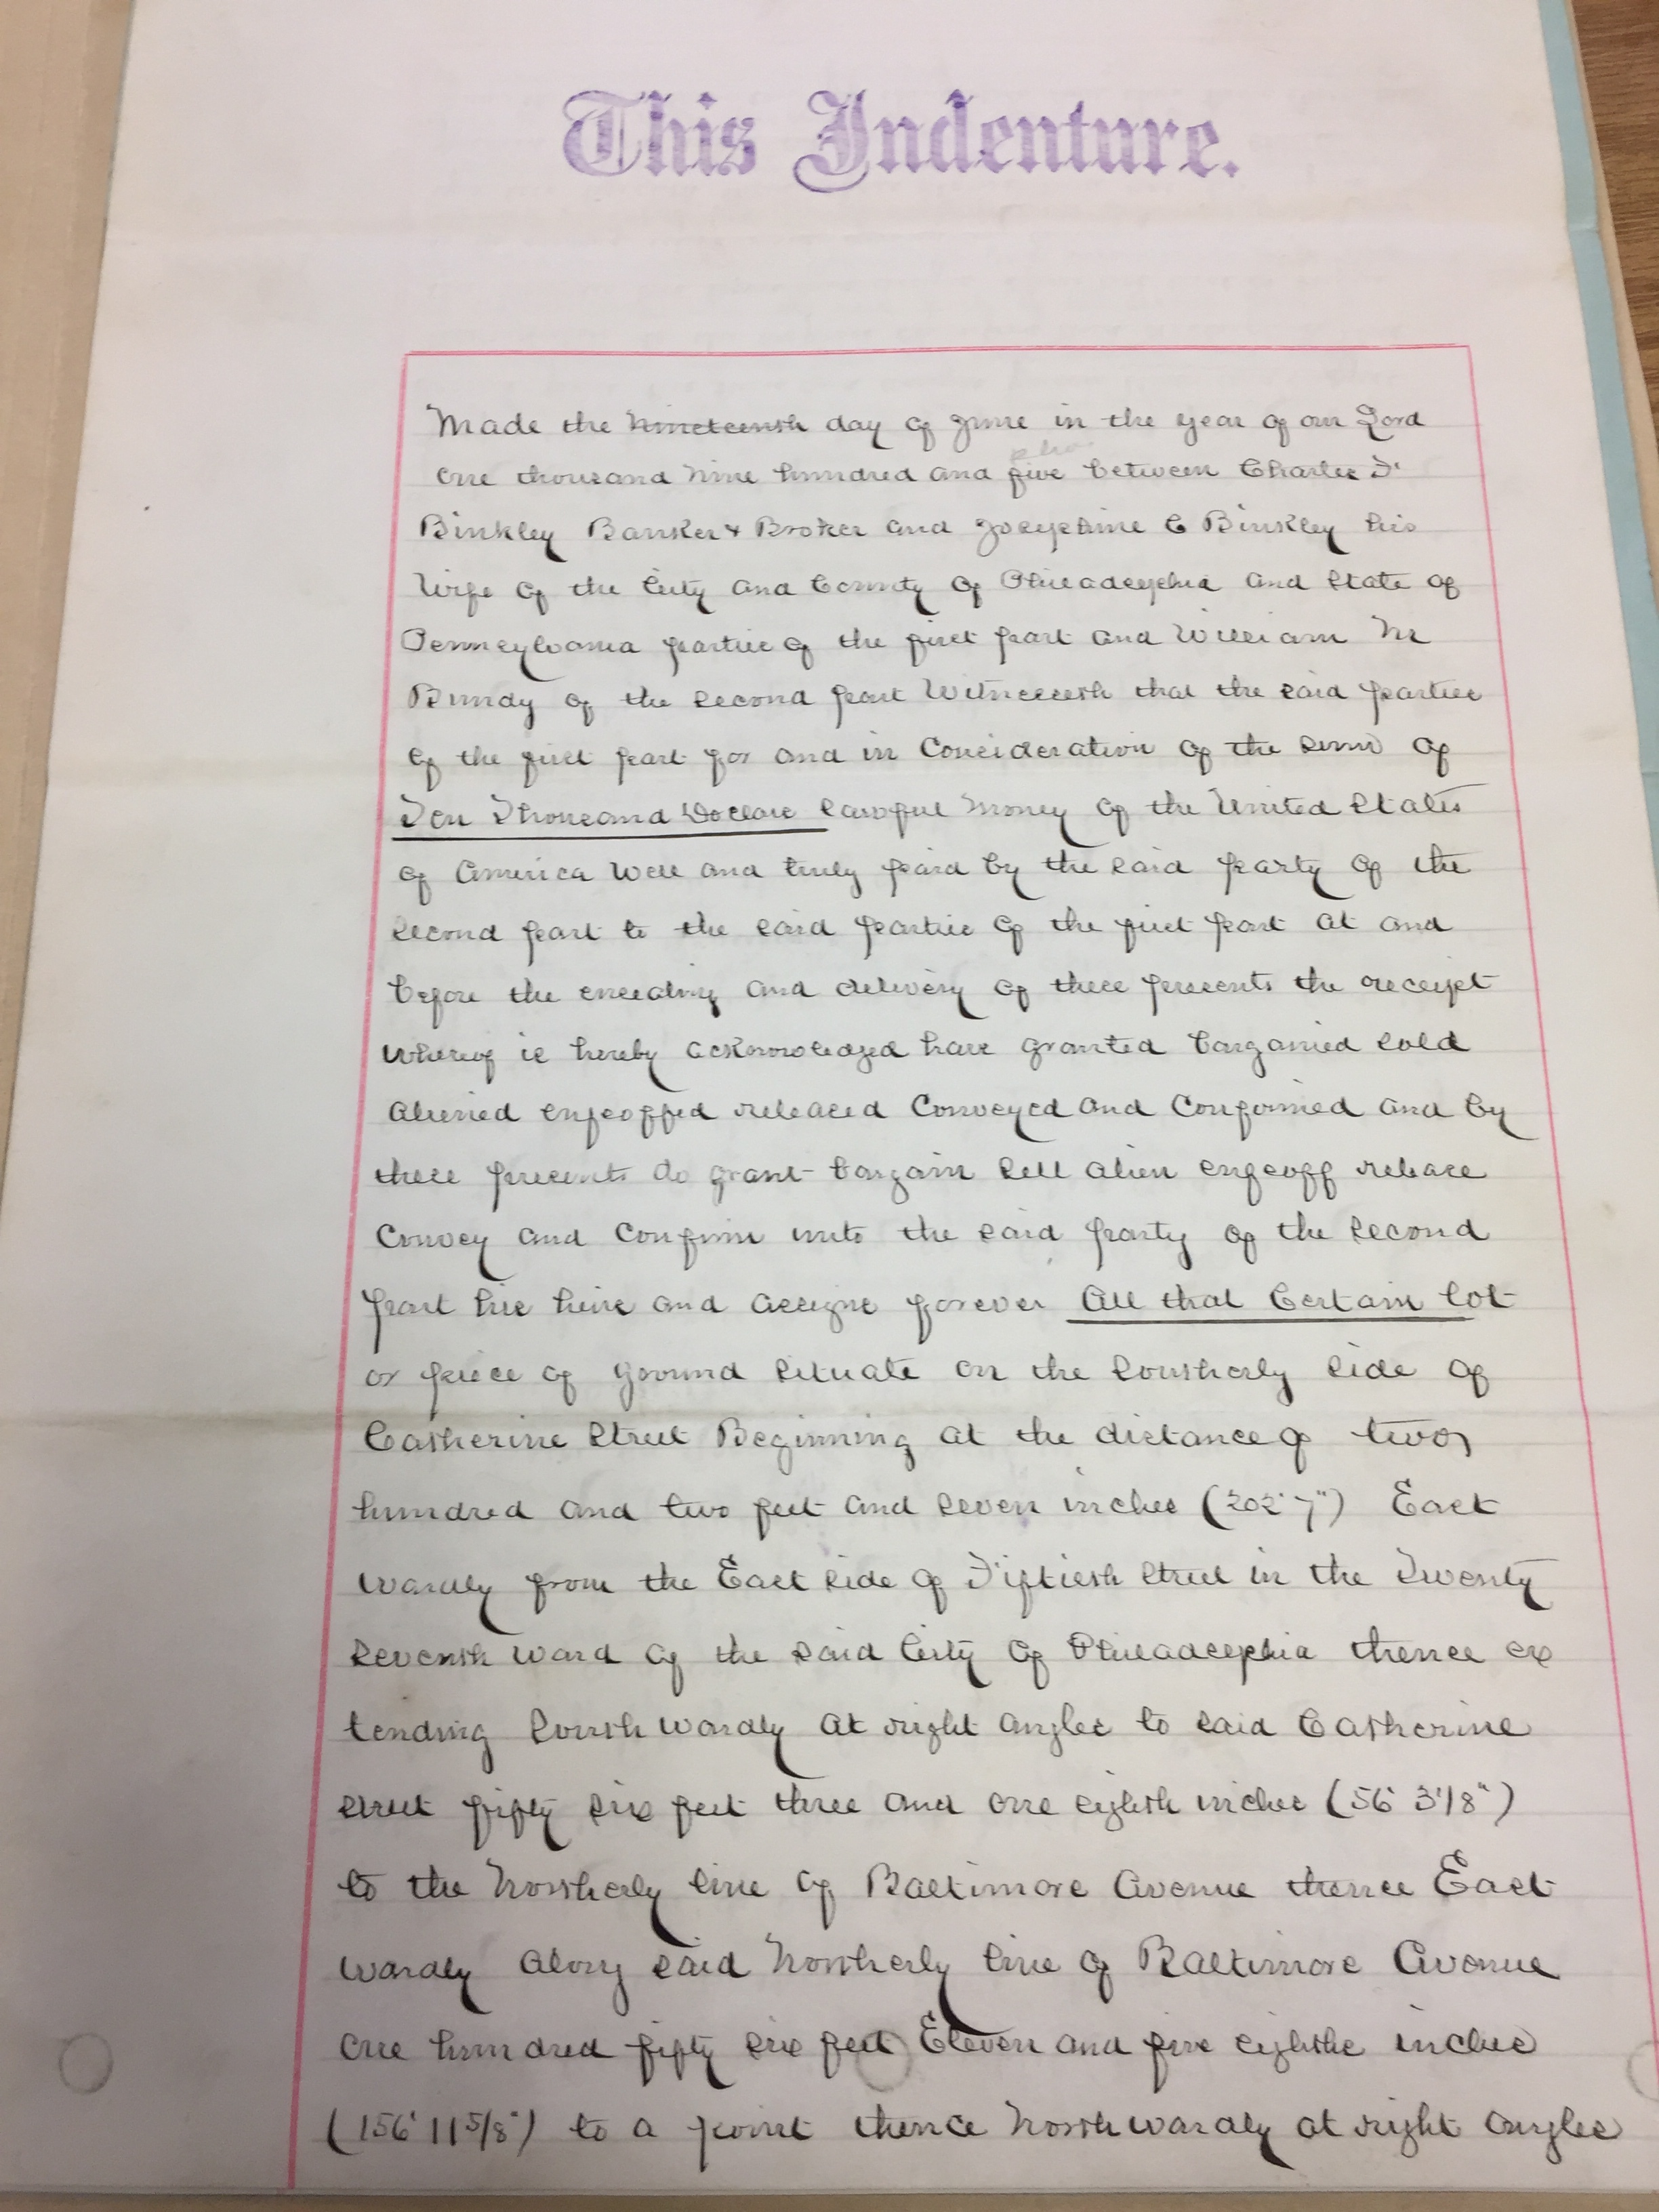 This Indenture.
Made the Nineteenth day of June in the year of our Lord
one thousand nine hundred and five between Charles F
Binkley Banker & Broker and Josephine C Binkley his
Wife of the City and County of Philadelphia and State of
Pennsylvania parties of the first part and William M
Bundy of the second part Witnesseth that the said parties
of the first part for and in Consideration of the sum of
Ten Thousand Dollars Lawful Money of the United States
of America Well and truly paid by the said party of the
second part to the said parties of the first part at and
before the ensealing and delivery of these presents the receipt
whereof is hereby acknowledged have granted bargained sold
aliened enfeoffed released Conveyed and Confirmed and by
these presents do grant bargain sell alien enfeoff release
Convey and Confirm unto the said party of the second
part his heirs and assigns forever All that Certain lot
or piece of ground situate on the Southerly side of
Catherine Street Beginning at the distance of two
hundred and two feet and seven inches (202' 7") East
wardly from the East side of Fiftieth Street in the Twenty
Seventh Ward of the said City of Philadelphia thence ex
tending Southwardly at right angles to said Catherine
Street fifty six feet three and one eighth inches (56' 3 1/8")
to the Northerly line of Baltimore Avenue thence East
wardly along said Northerly line of Baltimore Avenue
one hundred fifty six feet Eleven and five eighths inches
(156' 11 5/8") to a point thence Northwardly at right angles